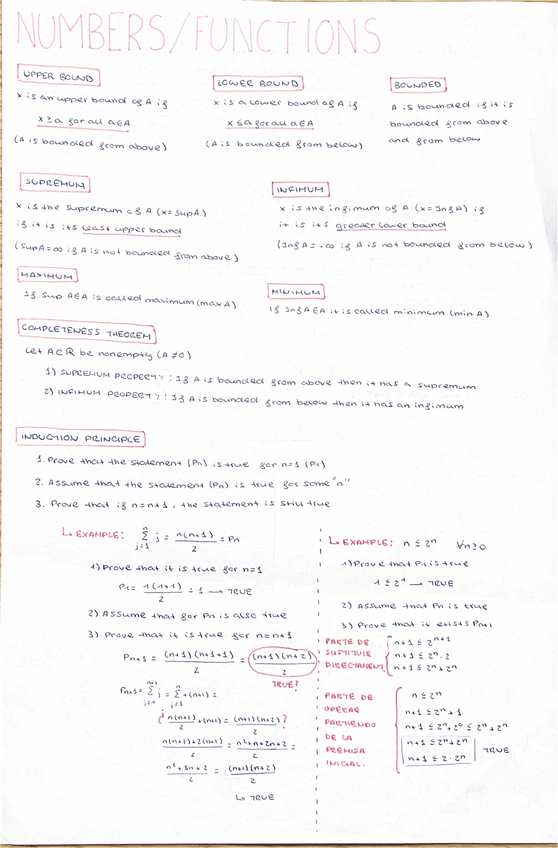 NUMBERS/FUNCTIONS
UPPER BOUND
x is an upper bound of A if
x ≥ a for all a∈A
(A is bounded from above)
LOWER BOUND
x is a lower bound of A if
x ≤ a for all a∈A
(A is bounded from below)
BOUNDED
A is bounded if it is
bounded from above
and from below
SUPREMUM
x is the supremum of A (x=SupA)
if it is its least upper bound
(SupA=∞ if A is not bounded from above)
INFIMUM
x is the infimum of A (x=InfA) if
it is its greater lower bound
(InfA=-∞ if A is not bounded from below)
MAXIMUM
If Sup A∈A is called maximum (max A)
MINIMUM
If InfA∈A it is called minimum (min A)
COMPLETENESS THEOREM
Let A⊂ℝ be nonempty (A≠0)
1) SUPREMUM PROPERTY: If A is bounded from above then it has a supremum
2) INFIMUM PROPERTY: If A is bounded from below then it has an infimum
INDUCTION PRINCIPLE
1. Prove that the statement (Pn) is true for n=1 (P1)
2. Assume that the statement (Pn) is true for some "n"
3. Prove that if n=n+1, the statement is still true
↳ EXAMPLE: n∑j=1 j = n(n+1)/2 = Pn
1) Prove that it is true for n=1
P1 = 1(1+1)/2 = 1 → TRUE
2) Assume that for Pn is also true
3) Prove that it is true for n=n+1
Pn+1 = (n+1)(n+1+1)/2 = (n+1)(n+2)/2
TRUE?
Pn+1 = n+1∑j=1 j = n∑j=1 + (n+1) =
¿ n(n+1)/2 + (n+1) = (n+1)(n+2)/2 ?
n(n+1)+2(n+1)/2 = n²+n+2n+2/2 =
n²+3n+2/2 = (n+1)(n+2)/2
↳ TRUE
↳ EXAMPLE: n ≤ 2ⁿ ∀n≥0
1) Prove that P1 is true
1 ≤ 2¹ → TRUE
2) Assume that Pn is true
3) Prove that it exists Pn+1
PARTE DE
SUSTITUIR
DIRECTAMENT.
n+1 ≤ 2ⁿ⁺¹
n+1 ≤ 2ⁿ·2
n+1 ≤ 2ⁿ+2ⁿ
PARTE DE
OPERAR
PARTIENDO
DE LA
PREMISA
INICIAL.
n ≤ 2ⁿ
n+1 ≤ 2ⁿ+1
n+1 ≤ 2ⁿ+2⁰ ≤ 2ⁿ+2ⁿ
n+1 ≤ 2ⁿ+2ⁿ
n+1 ≤ 2·2ⁿ
TRUE